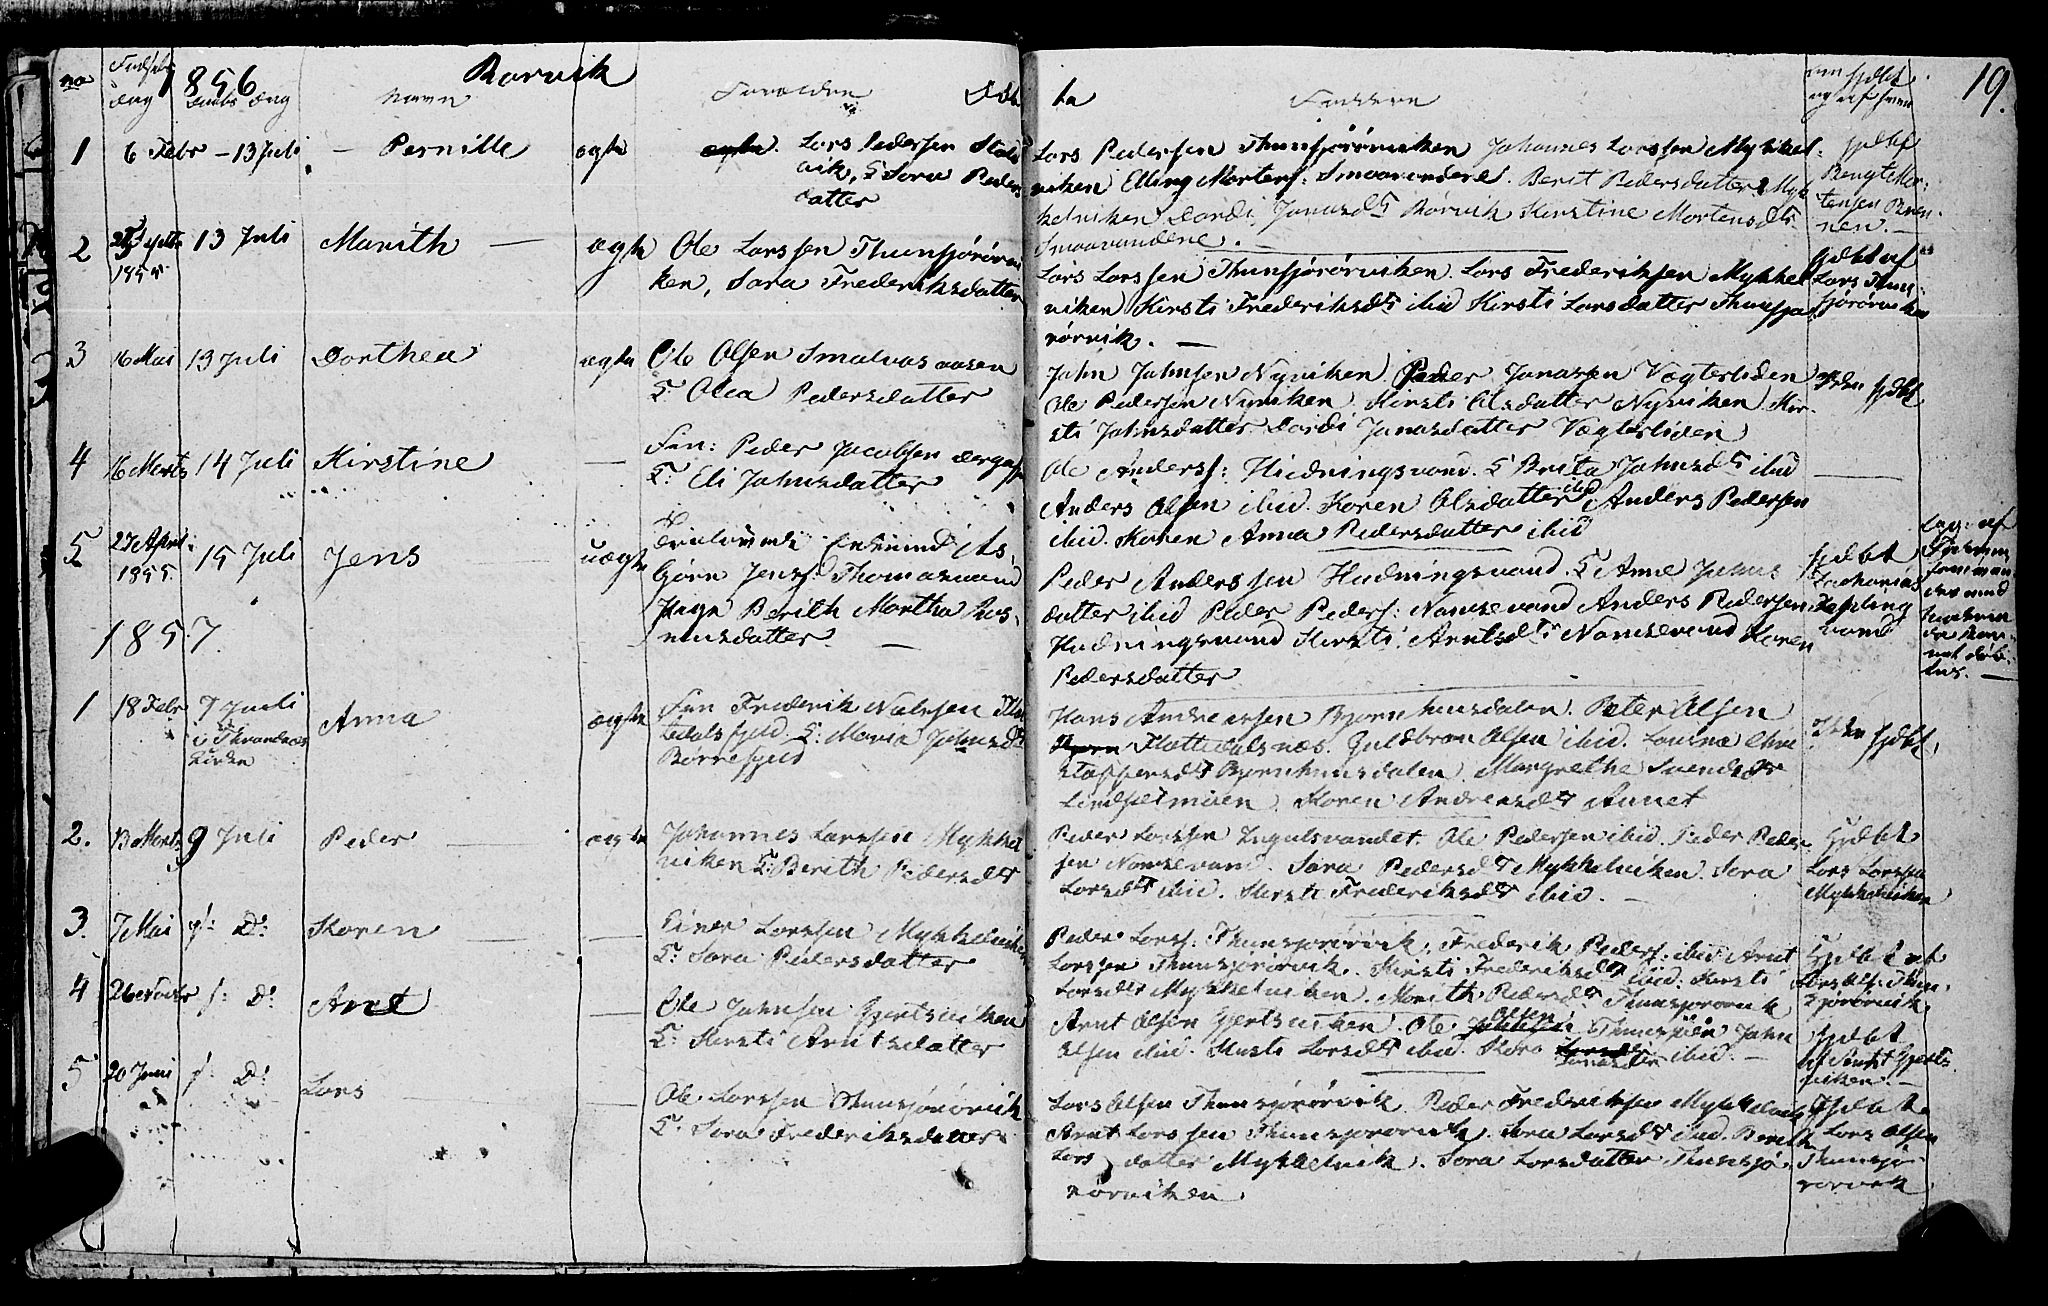 1856 Rørvik Døb te 19.
no Fødsels dag daabs dag Navn Forældre Faddere om hjdbt og af hvem
1 6 Febr – 13 Juli – Pernille ægte Lars Pedersen
vik, & Sara Peders
datter
Lars Pedersen Thunsjørørviken Johannes Larssen Mykkel-
viken Elling Mortens: Smaavandene. Berit Pedersdatter Myk
kelviken Dordi Jonasdtr Rørvik Kirstine Mortensdtr
Smaavandene. –
hjdbt
Bengt Mor-
tensen
nen. –
2 1855 13 Juli Marith – ægte Ole Larssen Thunsjørørvi
ken, Sara Frederiksdatter
Lars Larssen Thunsjørørviken. Lars Frederiksen Mykkel
viken Kirsti Frederiksdtr ibid Kirsti Larsdatter Thunsjø
rørvik. –
hjdbt af
Lars Thun-
sjørørviken
3 16 Mai 13 Juli Dorthea ægte Ole Olsen Smalvasaasen
& Olea Pedersdatter
John Johnsen Nyviken. Peder Jonassen Vægterliden
Ole Pedersen Nyviken. Kirsti Olsdatter Nyviken. Kir-
sti Johnsdatter Dordi Jonasdatter Vægterliden
Ikke hjdbt
4 16 Marts 14 Juli Kirstine — Fin: Peder Jacobsen
& Eli Johnsdatter
Ole Anders: Hudningsvand. & Brita Johnsdtr ibid
Anders Olsen ibid. Karen Olsdatter ibid Anders Pedersen
ibid. Karen Anna Pedersdatter ibid
5 27 April 1855. 15 Juli Jens uægte
Enkemand As-
bjørn Jens: Thomasvand
Pige Berith Martha Ras-
musdatter. –
Peder Anderssen Hudningsvand. & Anne Johns
datter ibid Peder Peders: Namsevand Anders Pedersen
Hudningsvand Kirsti Arntsdtr Namsevand Karen
Pedersdatter
hjdbt
Zacharias
vand
1857.
1 18 Febr 7 Juli
i Thrandnæs
Kirke
Anna ægte Fin Frederik Nielsen
tedalsfjeld & Maria Johnsdtr
Børrefjeld
Hans Andreassen Bjørnhusdalen. Peter Olsen
Flattedalsnæs. Guldbran Olsen ibid. Lovise Chri
stoffersdtr Bjørnhusdalen. Margrethe Svendsdtr
Lindsetmoen. Karen Andreasdtr Aunet
Ikke hjdbt.
2. 13 Marts 9 Juli Peder – ægte Johannes Larssen Mykkel
viken & Berith Pedersdtr
Peder Larssen Ingulsvandet. Ole Pedersen ibid. Peder Peder
sen Namsevand. Sara Pedersdtr Mykkelviken. Sara
Larsdtr ibid. Kirsti Frederiksdtr ibid. –
Hjdbt
Lars Larssen
Mykkelviken
3. 7 Mai s: D: Karen – — Einer Larssen Mykkelviken
& Sara Pedersdatter
Peder Larss: Thunsjørørvik. Frederik Peders: ibid Arnt
Larssen Thunsjørørvik. Kirsti Frederiksdtr ibid. Kirsti
Larsdtr Mykkelviken. Marith Pedersdtr Thunsjørørvik
Hjdbt af
Lars Ols: Thun-
sjørørvik.
4 26 s: D: Arnt — Ole Johnsen Gjertsviken
& Kirsti Arntsdatter
Arnt Olsen Gjertsviken. Ole Olsen Thunsjøen John
Olsen ibid. Kirsti Larsdtr ibid. Sara ibid. –
hjdbt
af Arnt Gjerts-
viken. –
5 20 Juni s: D: Lars — Ole Larssen Thunsjørørvik
& Sara Frederiksdatter.
Lars Olsen Thunsjørørvik. Peder Frederiksen Mykkelvik
Arnt Larssen Thunsjørørvik. Sara Larsdtr ibid. Berith
Lars datter Mykkelvik. Sara Larsdatter Thunsjø-
rørviken.
hjdbt
Lars Olsen
Thunsjø-
rørvik